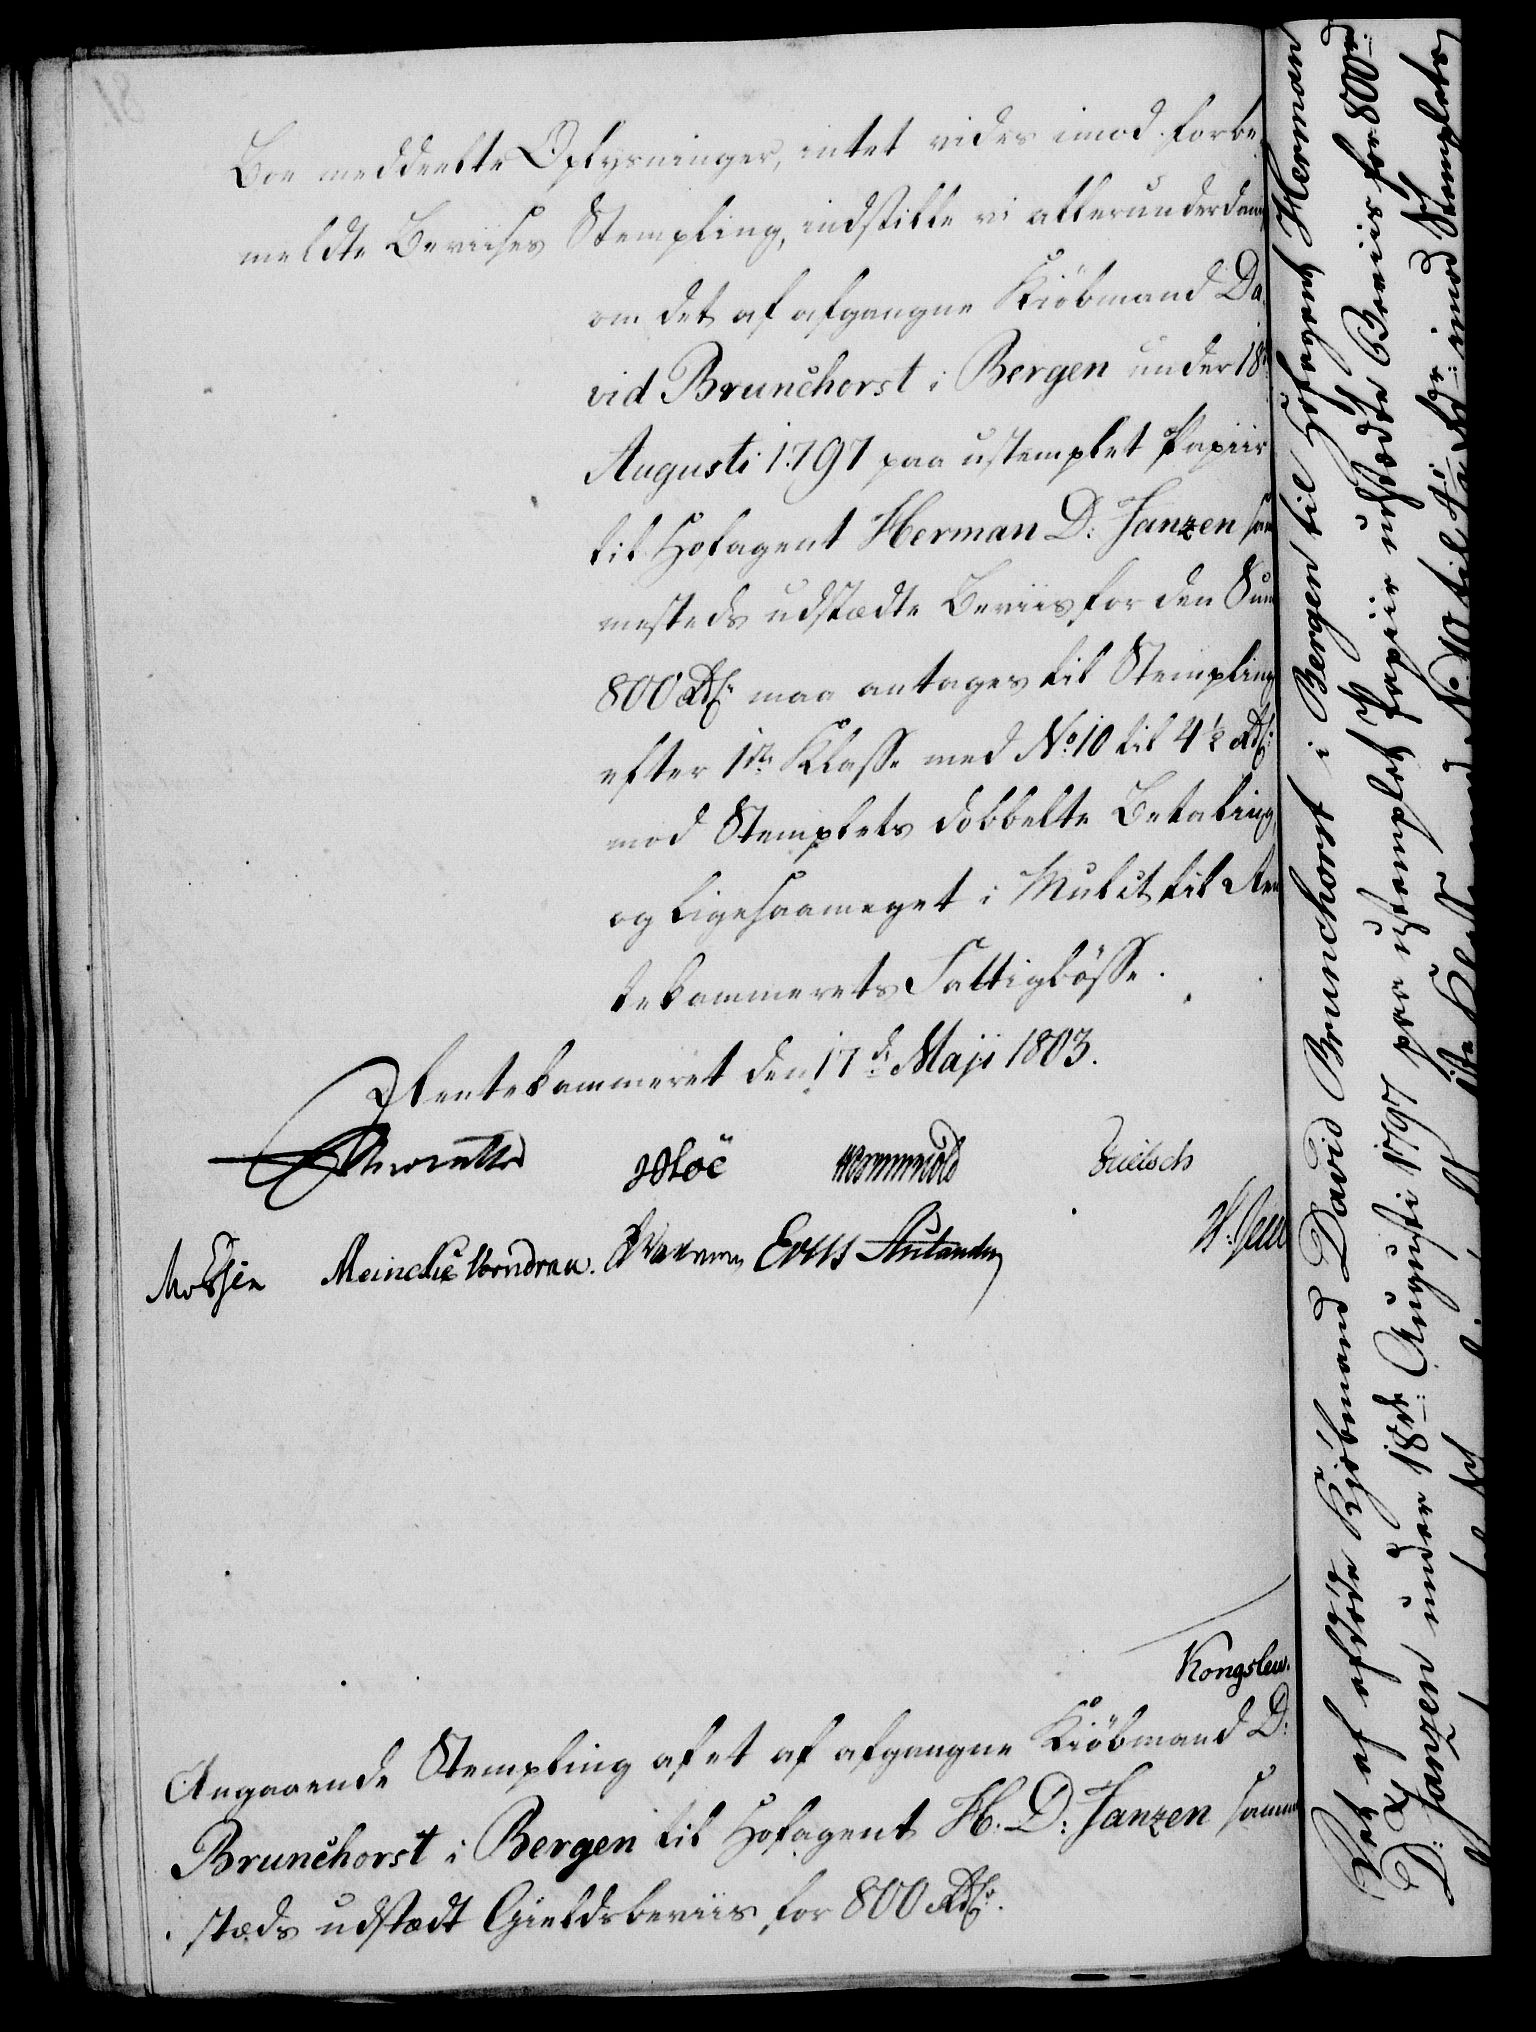 Boe meddeelte Oplysninger, intet vides imod forbe
meldte Beviises Stempling, indstille vi allerunderdan
om det af afgangne Kiöbmand Da
vid Brunchorst i Bergen under 18de
Augusti 1797 paa ustemplet Papiir
til Hofagent Herman D: Janzen sam
mesteds udstædte Beviis for den Sum
800 Rdr. maa antages til Stempling
efter 1ste Klasse med No 10 til 4½ Rdr:
mod Stemplets dobbelte Betaling,
og ligesaameget i Mulct til Ren
tekammerets Fattigbösse.
Rentekammeret den 17de Maji 1803.
Hoë Wormskiold
Meincke Vondrau.
Kongslew.
Angaaende Stempling af et af afgangne Kiöbmand D:
Brunchorst i Bergen til Hofagent H. D: Janzen samme
stæds udstædt Gieldsbeviis for 800 Rdr.
Det af afdöde Kjöbmand David Brunchorst i Bergen til Hofagent Herman
D: Janzen under 18de Augusti 1797 paa ustemplet Papiir udstædte Beviis for 800 rd:
imod Stemplets